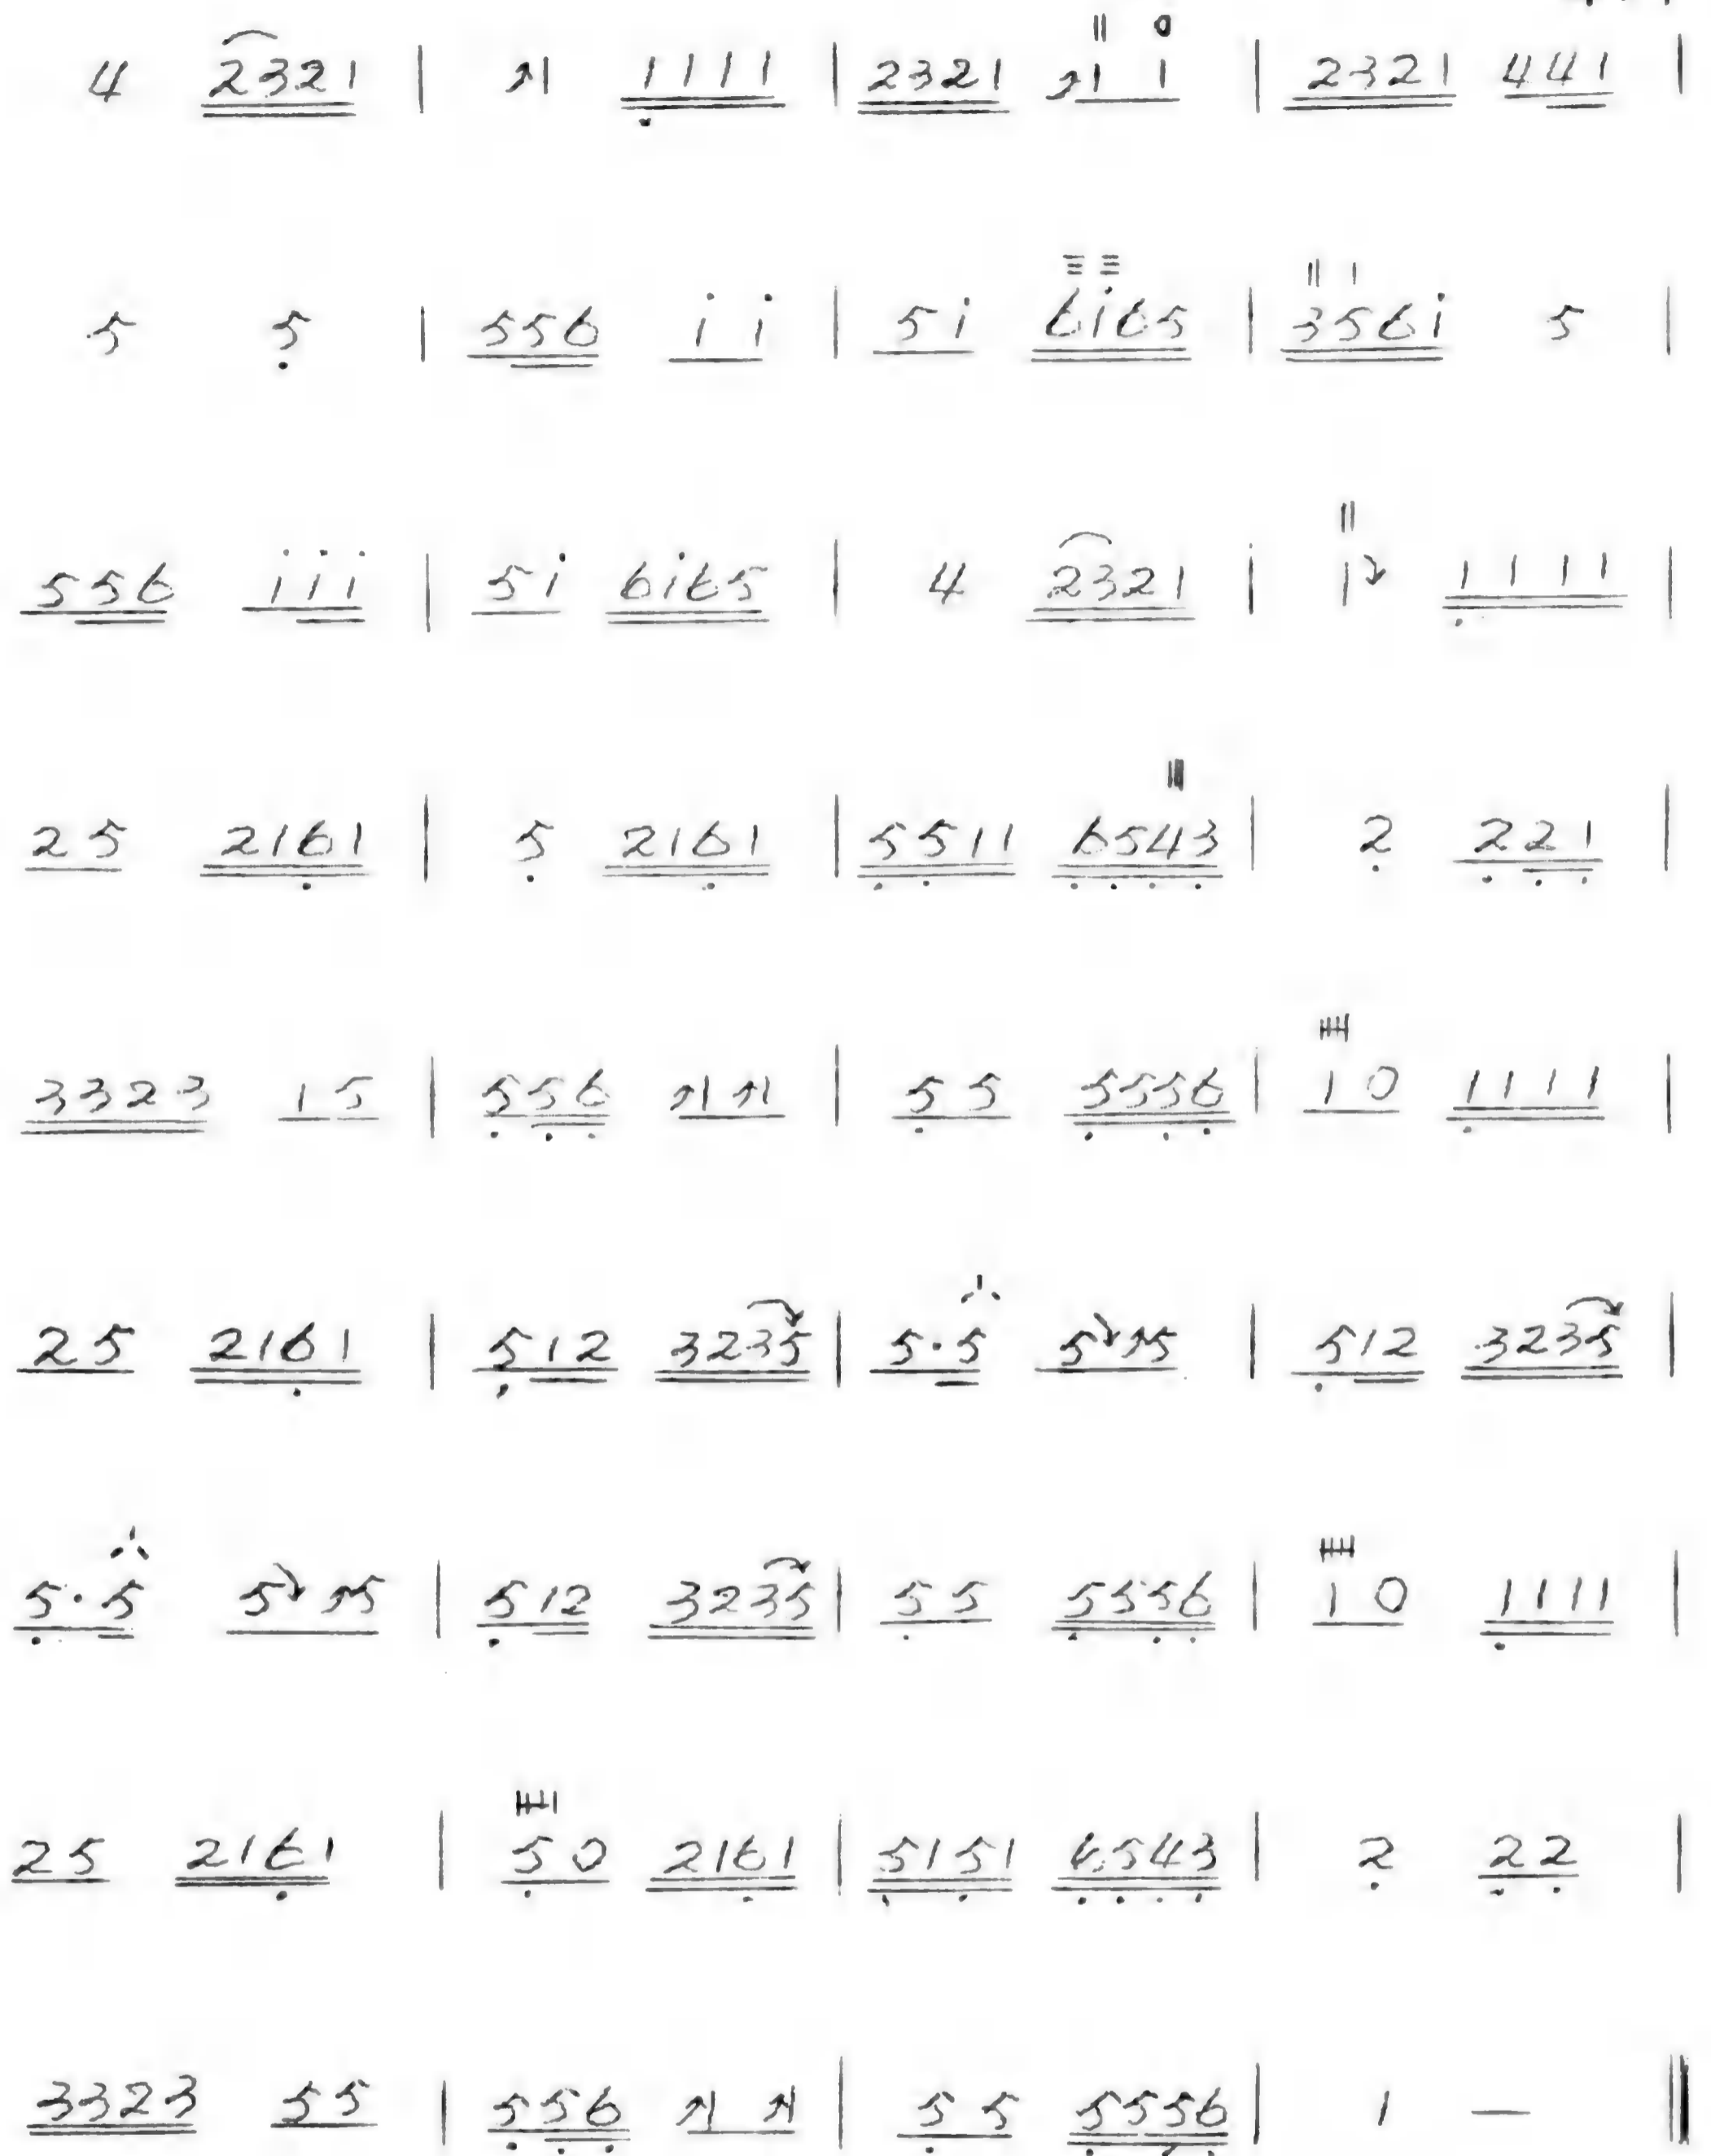 4 2321 | ↗1 1111 | 2321 ↗1 1 | 2321 441 |
5 5̣ | 556 i i | 5i 6i65 | 356i 5 |
556 iii | 5i 6i65 | 4 2321 | 1↘ 1̣111 |
25 216̣1 | 5̣ 216̣1 | 5̣5̣11 6̣5̣4̣3̣ | 2̣ 2̣2̣1̣ |
3323 15 | 5̣5̣6̣ ↗1↗1 | 5̣5 5̣556̣ | 10 1̣111 |
25 216̣1 | 5̣12 3235 | 5·5 5↘↗5 | 5̣12 3235 |
5̣·5 5↘↗5 | 5̣12 3235 | 5̣5 5̣55̣6̣ | 10 1̣111 |
25 216̣1 | 5̣0 216̣1 | 5̣15̣1 6̣5̣4̣3̣ | 2̣ 2̣2̣ |
3323 55 | 5̣5̣6̣ ↗1↗1 | 5̣5 5̣55̣6̣ | 1 — ‖